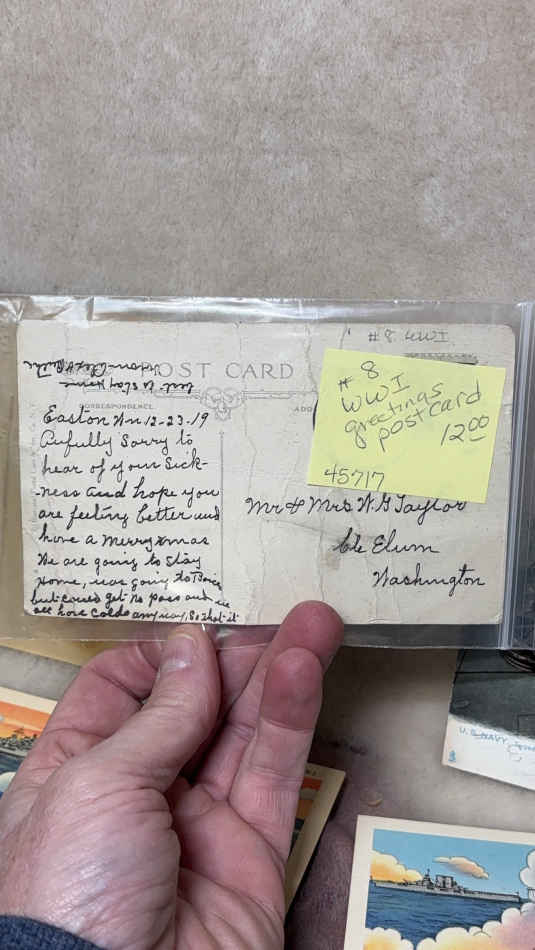 # 8 WWI
# 8
WWI
greetings
postcard
12.00
45717
POST CARD
CORRESPONDENCE
ADD
Easton Wn 12-23-19
Aufully Sorry to
hear of your Sick-
-ness and hope you
are feeling better and
have a merry xmas
We are going to stay
home, was going to
but could get no pass and we
all have colds anyway, So that it
best to stay Home
Mr & Mrs W.G Taylor
Cle Elum
Washington
U.S. NAVY